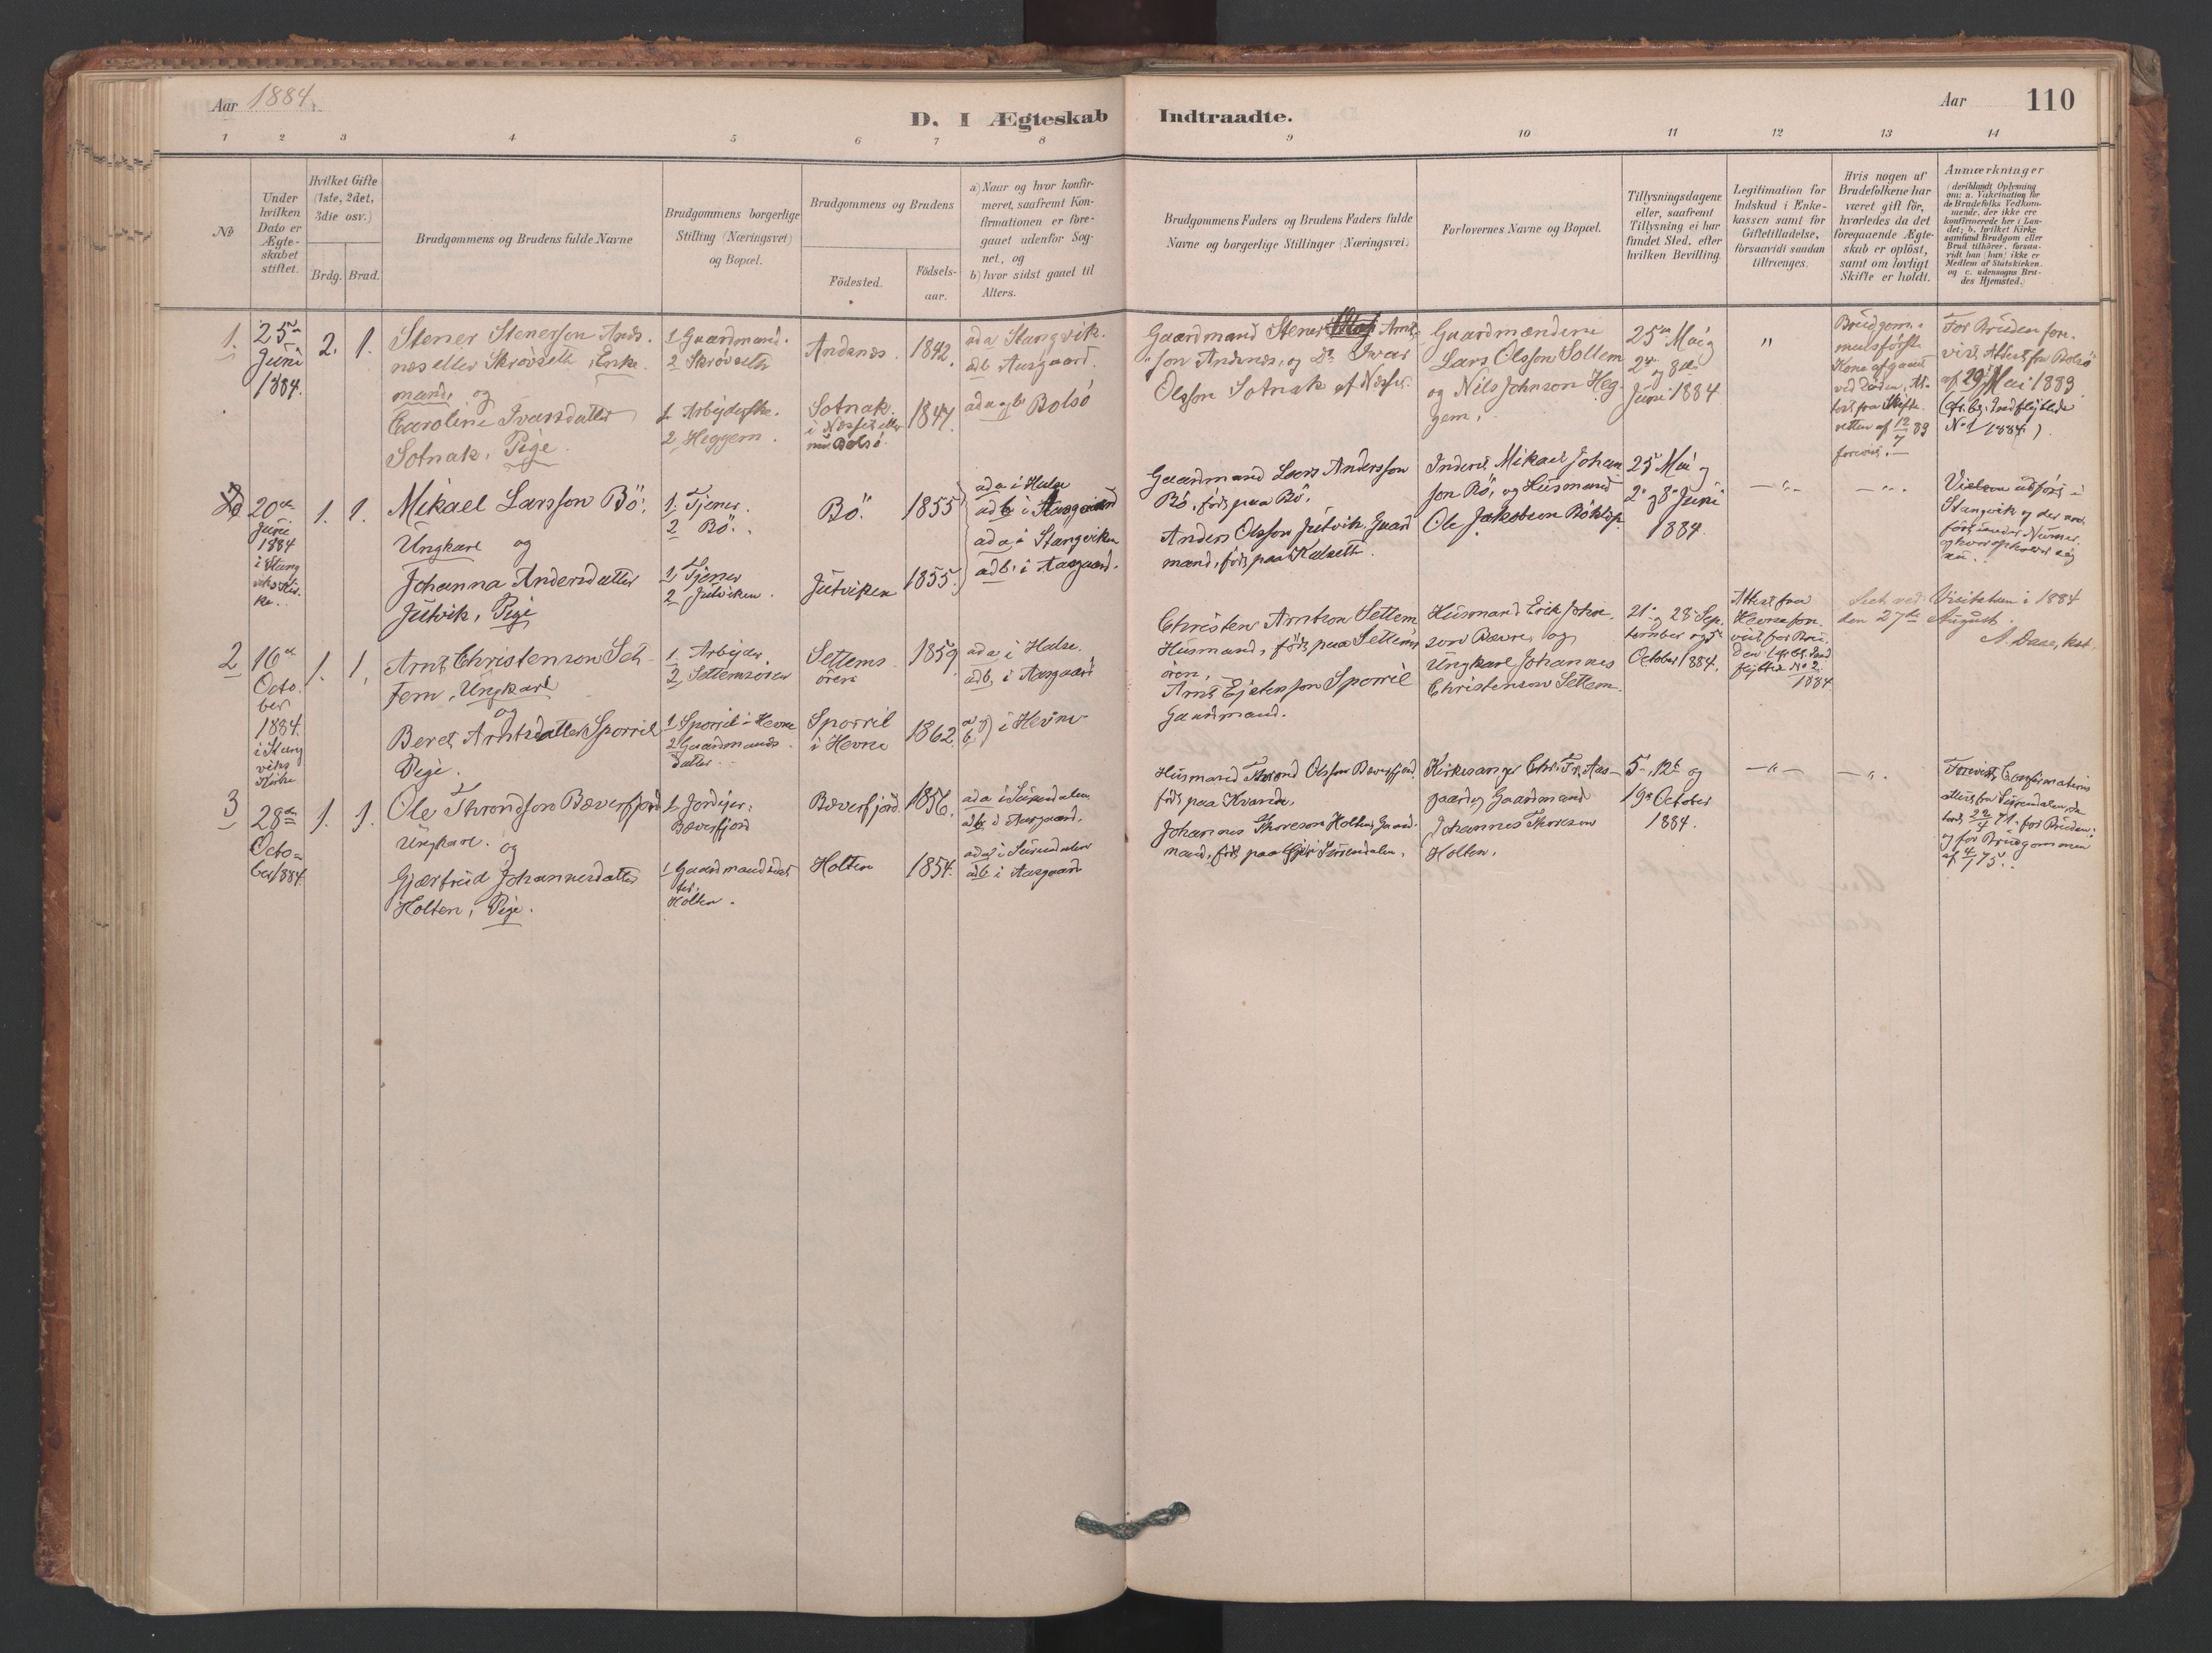 Aar 1884.
D. I Ægteskab Indtraadte.
Aar 110
1 2 3 4 5 6 7 8 9 10 11 12 13 14
No
Under
hvilken
Dato er
Ægte-
skabet
stiftet.
Hvilket Gifte
(1ste, 2det,
3die osv.)
Brdg. Brud.
Brudgommens og Brudens fulde Navne
Brudgommens borgerlige
Stilling (Næringsvei)
og Bopæl.
Brudgommens og Brudens
Födested.
Födsels-
aar.
a) Naar og hvor konfir-
meret, saafremt Kon-
firmationen er fore-
gaaet udenfor Sog-
net, og
b) hvor sidst gaaet til
Alters.
Brudgommens Faders og Brudens Faders fulde
Navne og borgerlige Stillinger (Næringsvei)
Forlovernes Navne og Bopæl.
Tillysningsdagene
eller, saafremt
Tillysning ei har
fundet Sted, efter
hvilken Bevilling.
Legitimation for
Indskud i Enke-
kassen samt for
Giftetilladelse,
forsaavidt saadan
tiltrænges.
Hvis nogen af
Brudefolkene har
været gift för,
hvorledes da det
foregaaende Ægte-
skab er oplöst,
samt om lovligt
Skifte er holdt.
Anmærkninger
(deriblandt Oplysning
om: a. Vakcination for
de Brudefolks Vedkom-
mende, der ikke ere
konfirmerede her i Lan-
det; b. hvilket Kirke-
samfund Brudgom eller
Brud tilhörer, forsaa-
vidt han (hun) ikke er
Medlem af Statskirken.
og c. udensogns Bru-
des Hjemsted.)
1.
25de
Juni
1884.
2. 1.
Stener Stenersson And-
nes eller Skrövseth, Enke-
mand, og
Caroline Ivarsdatter
Sotnak, Pige.
1 Gaardmand.
2 Skrövseth
1. Arbejderske.
2 Heggem.
Andenes.
Sotnak
i Nesset eller
nu Bolsö.
1842.
1847.
ad a Stangvik.
ad b Aasgaard.
ad a og b Bolsö
Gaardmand Stener Arnt-
son Andenes, og Do Iwar
Olsson Sotnak af Nesset.
Gaardmændene
Lars Olsson Sollem
og Nils Johnson Heg-
gem.
25de Mai,
2den og 8de
Juni 1884.
"
Brudgom-
mens förste
Kone afgaaet
ved Döden, At-
test fra Skifte-
retten af 12/7 83
forevist.
For Bruden fore-
vist Attest fra Bolsö
af 29 Mai 1883
(cfr. bg. Indflyttede
No 1 1884).
20de
Juni
1884
i Stang
viks Kir-
ke.
1. 1.
Mikael Larsson Bö,
Ungkarl og
Johanna Andersdatter
Jutvik, Pige
1. Tjener.
2 Bö.
1, Tjener
2 Jutviken.
Bö.
Jutviken
1855
1855.
ad a i Halse
ad b i Aasgaard
ad a i Stangviken
ad b. i Aasgaard.
Gaardmand Lars Andersson
Bö, föds paa Bö.
Anders Olsson Jutvik, Gaard
mand, föds paa Kalseth.
Inderst Mikael Johan
son Bö, og Husmand
Ole Jakobson Böklöp.
25 Mai og
2den og 8de Juni
1884.
— " —
— " —
Vielsen udfört i
Stangvik og der ind-
fört under Numer
2
16de
Octo-
ber
1884.
i Stang
viks
Kirke
1. 1.
Arnt Christenson Set-
tem, Ungkarl
og
Beret Arntsdatter Sporril
Pige.
1. Arbejder.
2, Settemsören
1 Sporril i Hevne
2 Gaardmands-
datter.
Settems
ören
Sporril
i Hevne
1859.
1862
ad a i Halse.
ad b. i Aasgaard
a
b) i Hevne
Christen Arntson Settem
Husmand, föds paa Settems
ören.
Arnt Ejstensson Sporril
Gaardmand.
Husmand Erik John-
son Bævre, og
Ungkarl Johannes
Christenson Settem.
21de og 28de Sep-
tember og 5te
October 1884.
Attest fra
Hevne fore-
vist for Bru-
den. (cfr. bg. Ind
flyttede No 2.
1884
Seet ved Visitatsen i 1884
den 27de August.
A. Daae, kst.
3
28de
Octo-
ber 1884
1. 1.
Ole Throndsson Bæverfjord
Ungkarl. og
Gjærtrud Johannesdatter
Holten, Pige.
1. Jordejer.
Bæverfjord
1 Gaardmandsdat
ter.
Holten.
Bæverfjord.
Holten
1856.
1854.
ad a i Surendalen
ad b i Aasgaard.
ad a i Surendalen
ad b i Aasgaard
Husmand Thrond Olsson Bæverfjord
föds paa Kvande.
Johannes Thoreson Holten, Gaard-
mand, föds paa Gjör i Surendalen.
Kirkesanger Chr. Fr. Aas-
gaard og Gaardmand
Johannes Thoreson
Holten.
5te, 12te og
19de October
1884.
— " —
— " —
Forevist Confirmations
attest fra Surendalen, da-
teret 22/4 71. for Bruden,
og for Brudgommen
af 4/1 75.